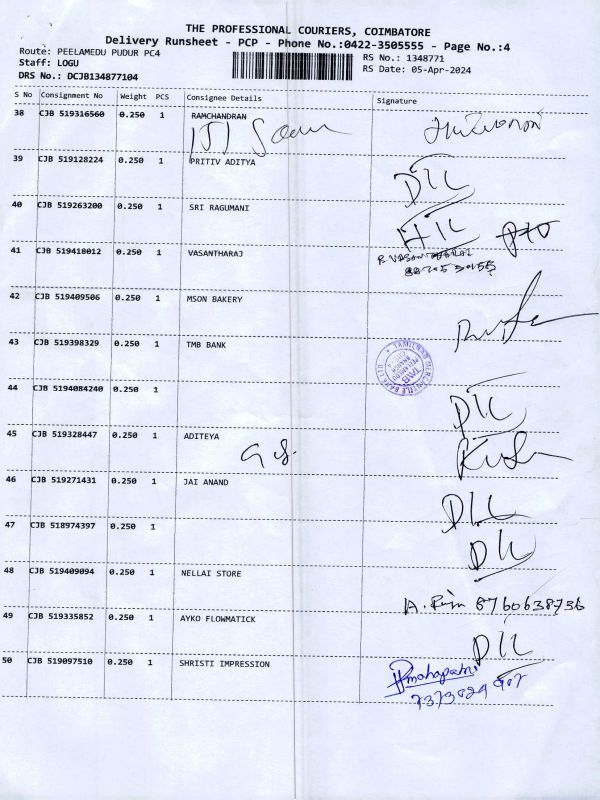 THE PROFESSIONAL COURIERS, COIMBATORE
Delivery Runsheet - PCP - Phone No.:0422-3505555 - Page No.:4
Route: PEELAMEDU PUDUR PC4
RS No.: 1348771
Staff: LOGU
RS Date: 05-Apr-2024
DRS No.: DCJB134877104
S No Consignment No Weight PCS Consignee Details Signature
38 CJB 519316560 0.250 1 RAMCHANDRAN
39 CJB 519128224 0.250 1 PRITIV ADITYA
D/L
40 CJB 519263200 0.250 1 SRI RAGUMANI
41 CJB 519418012 0.250 1 VASANTHARAJ
42 CJB 519409506 0.250 1 MSON BAKERY
43 CJB 519398329 0.250 1 TMB BANK
TAMILNAD MERCANTILE BANK LTD
44 CJB 5194084240 0.250 1
D/L
45 CJB 519328447 0.250 1 ADITEYA
46 CJB 519271431 0.250 1 JAI ANAND
D/L
47 CJB 518974397 0.250 1
D/L
48 CJB 519409094 0.250 1 NELLAI STORE
8760638736
49 CJB 519335852 0.250 1 AYKO FLOWMATICK
D/L
50 CJB 519097510 0.250 1 SHRISTI IMPRESSION